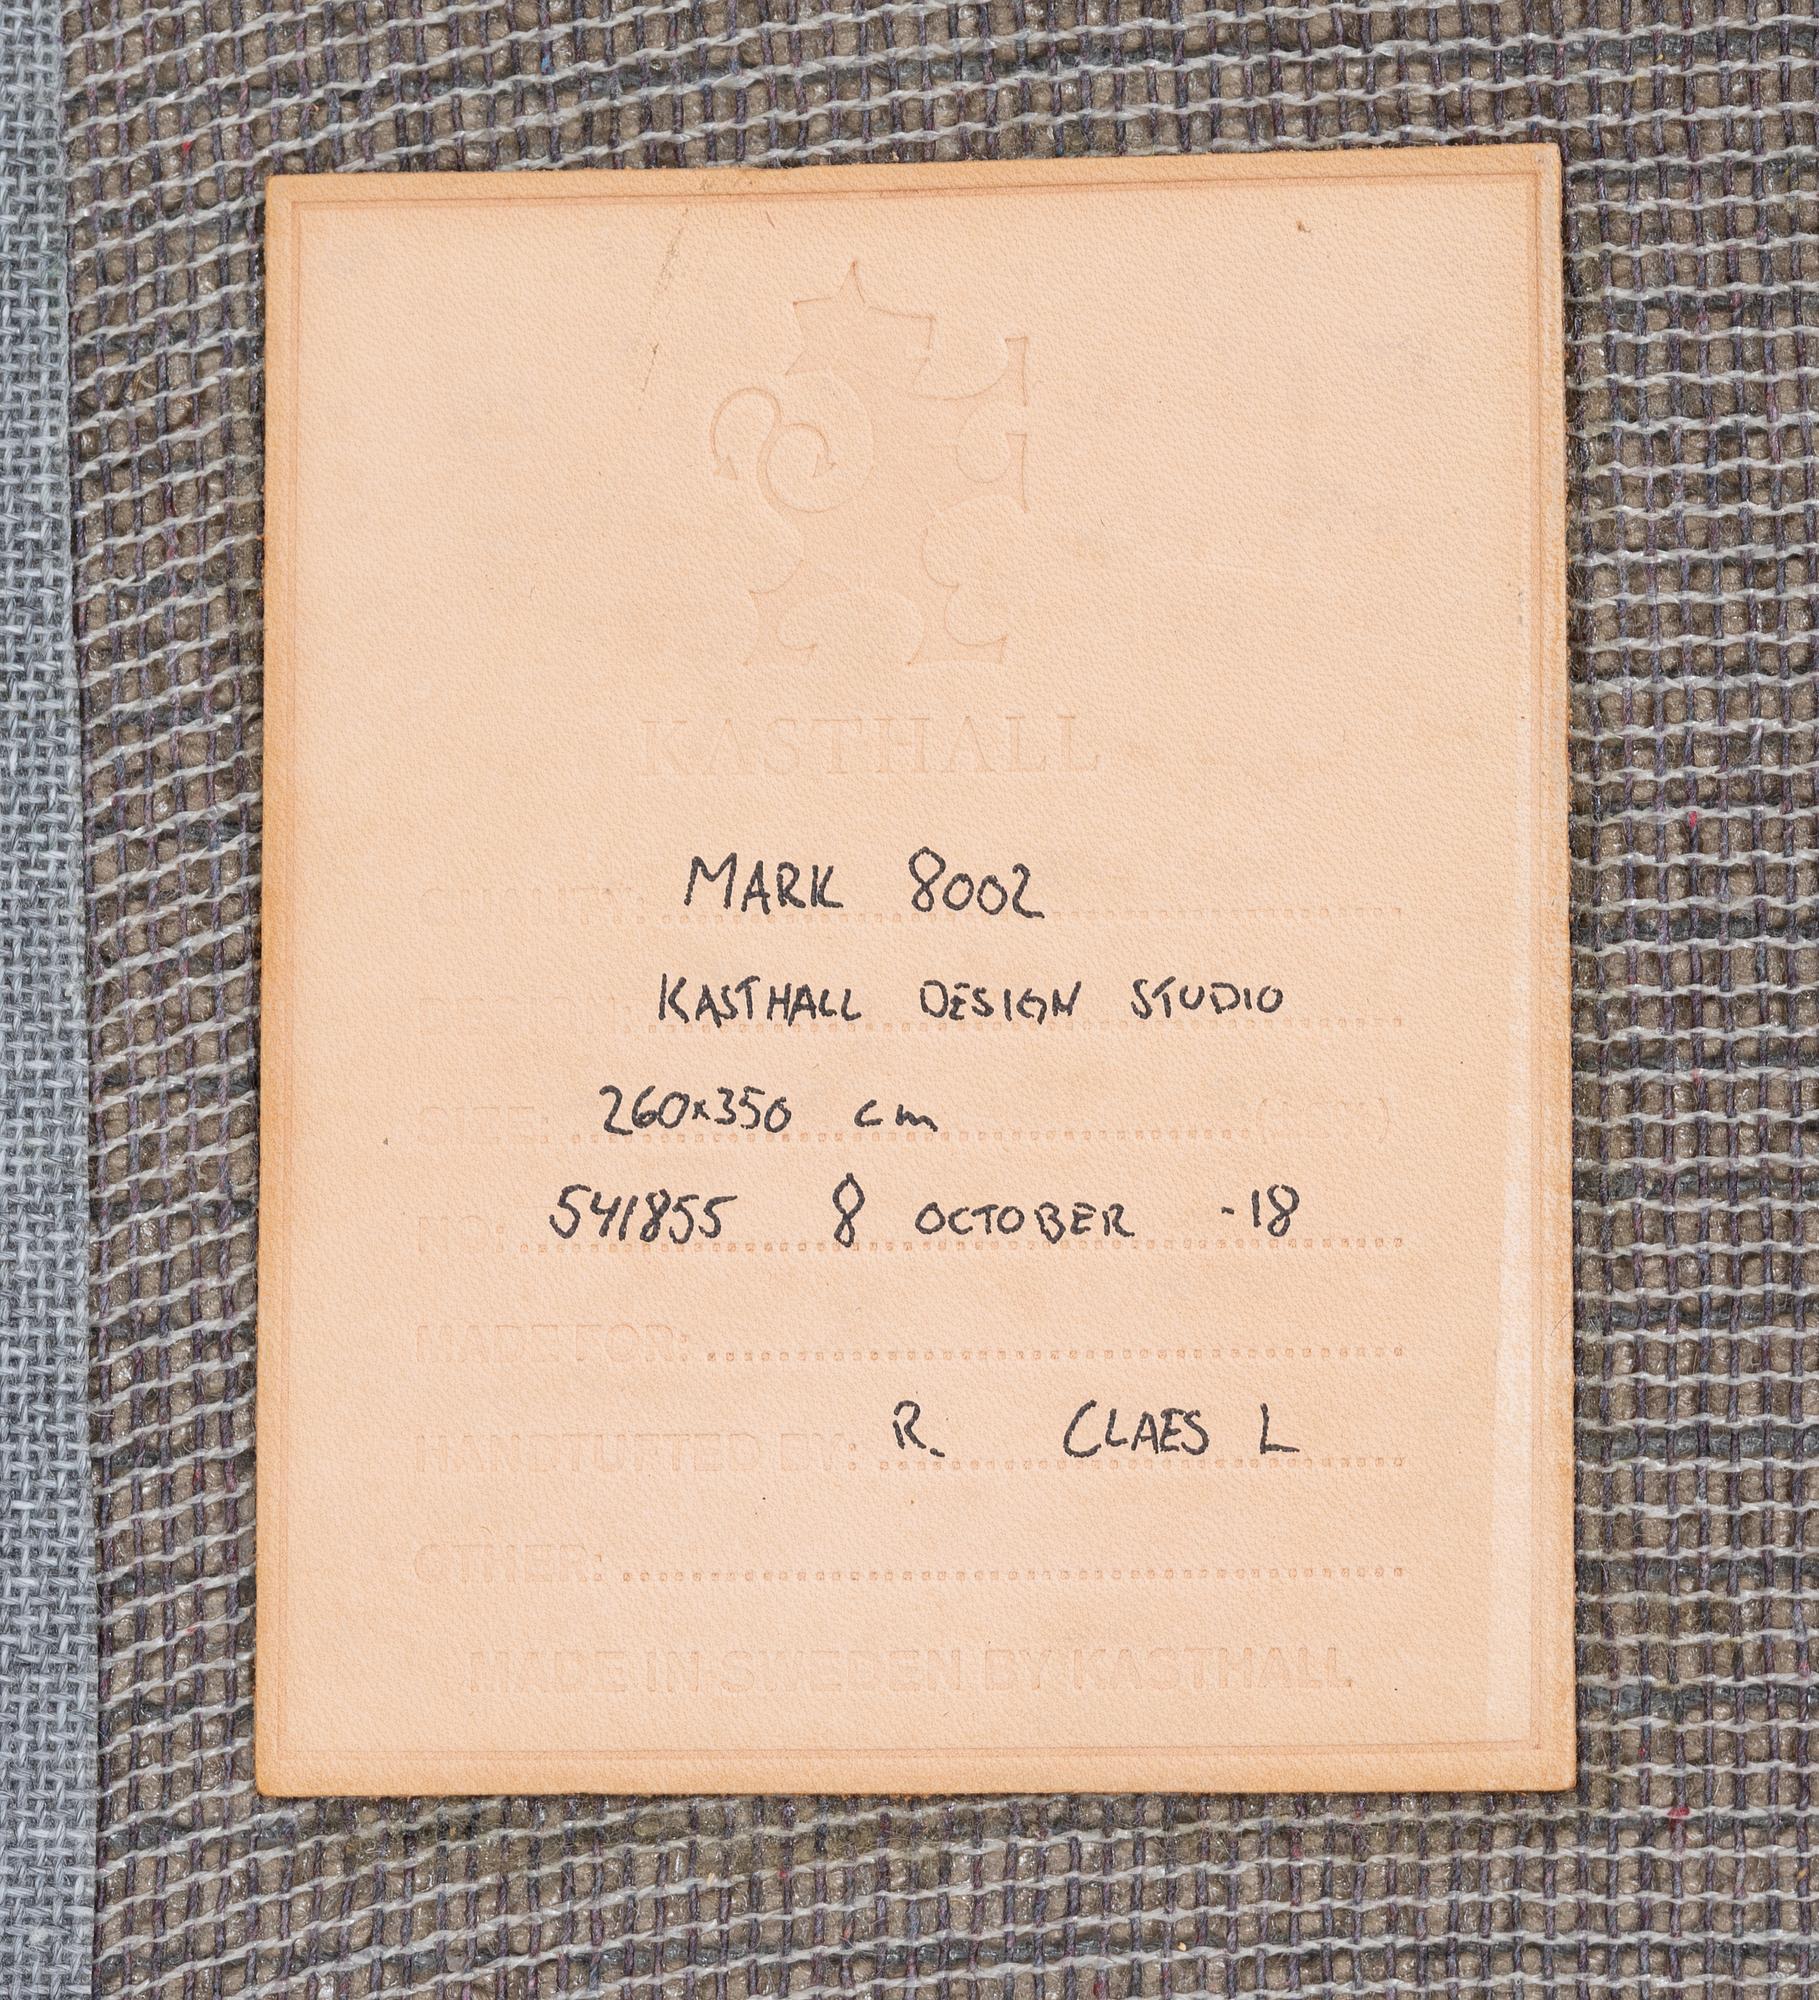 KASTHALL
QUALITY: MARK 8002
KASTHALL DESIGN STUDIO
SIZE: 260x350 cm
NO: 541855 8 OCTOBER -18
MADE FOR:
HANDTUFTED BY: R. CLAES L
OTHER:
MADE IN SWEDEN BY KASTHALL